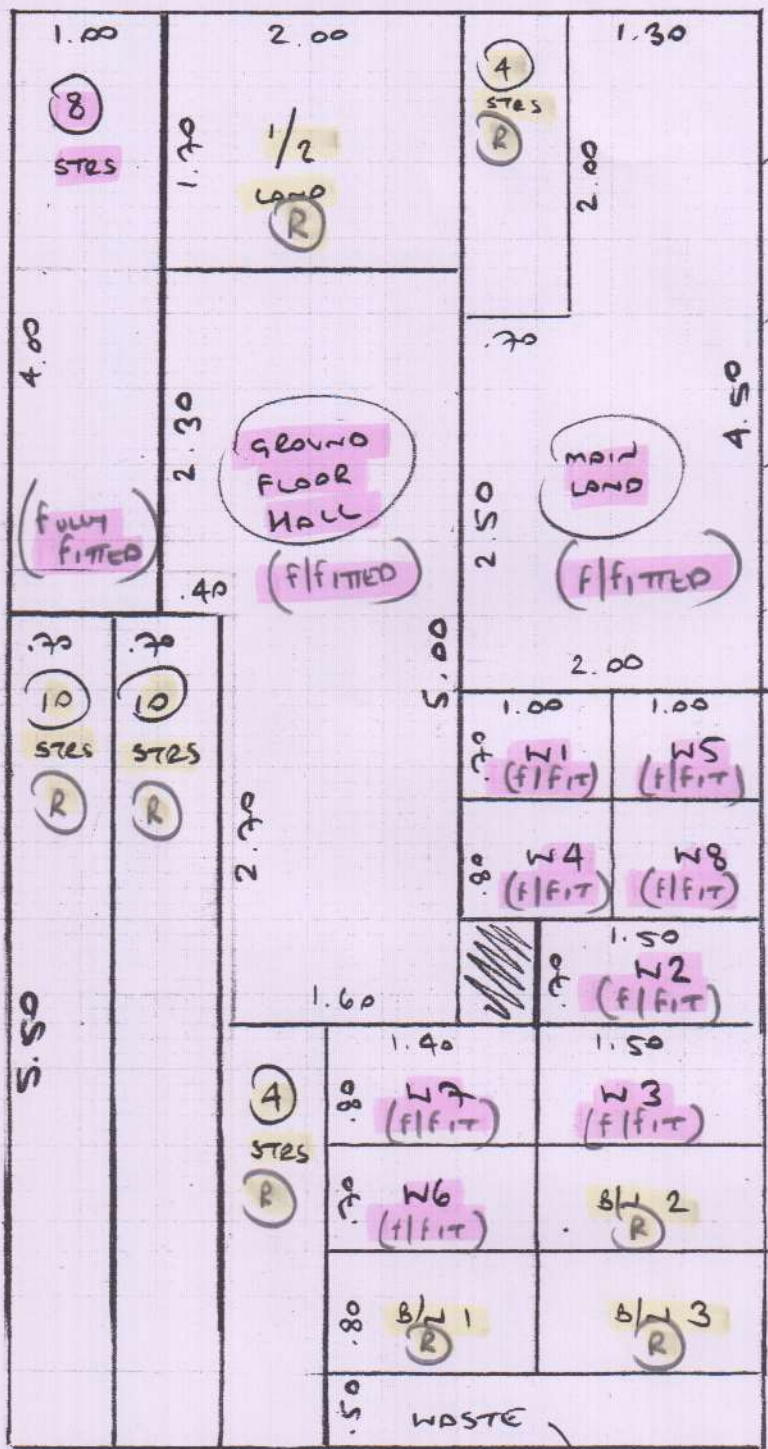 1.00
8
STRS
4.00
(FULLY
FITTED)
2.00
1.70
1/2
LAND
R
4
STRS
R
1.30
2.00
.70
2.30
GROUND
FLOOR
HALL
(F/FITTED)
.40
5.00
4.50
MAIN
LAND
2.50
(F/FITTED)
2.00
.70
10
STRS
R
.70
10
STRS
R
5.50
2.70
1.60
1.00
.70
W1
(F/FIT)
1.00
W5
(F/FIT)
.80
W4
(F/FIT)
W8
(F/FIT)
1.50
.70
W2
(F/FIT)
4
STRS
R
1.40
.80
W7
(F/FIT)
1.50
W3
(F/FIT)
.70
W6
(F/FIT)
B/W 2
R
.80
B/W 1
R
B/W 3
R
.50
WASTE